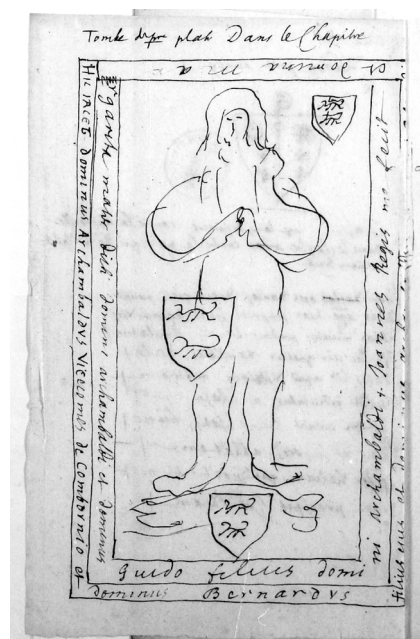 Tombe plate Dans le Chapitre
Hic iacet dominus Archambaldus Vicecomes de Combornio et
dominus Bernardus
filius eius et dominus
et domina
mater dicti domini archambaldi et dominus
Guido filius domi
ni Archambaldi + Joannes Regis me fecit